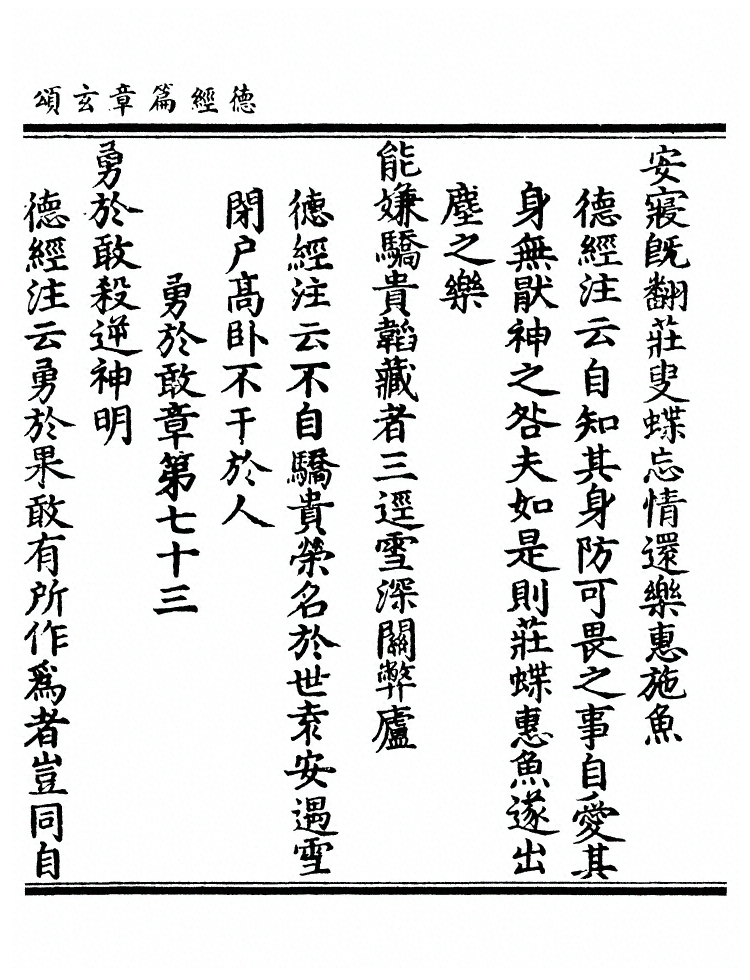 德經篇章玄頌
安寢旣翻莊叟蝶忘情還樂惠施魚
德經注云自知其身防可畏之事自愛其
身無厭神之咎夫如是則莊蝶惠魚遂出
塵之樂
能嫌驕貴韜藏者三逕雪深關弊廬
德經注云不自驕貴榮名於世袁安遇雪
閉户髙卧不干於人
勇於敢章第七十三
勇於敢殺逆神明
德經注云勇於果敢有所作爲者豈同自